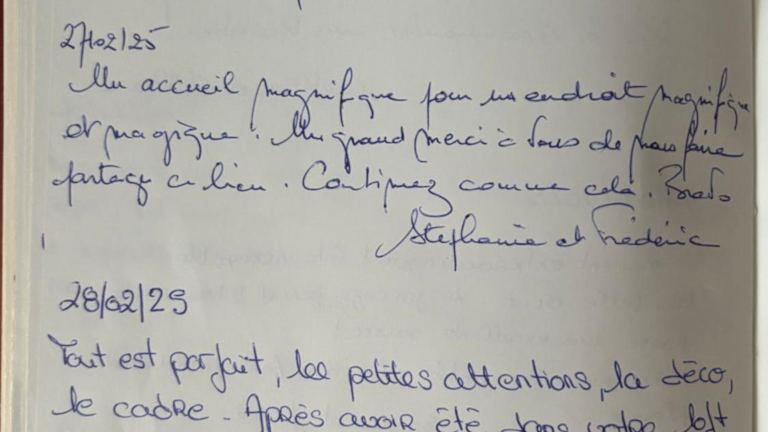 27/02/25
Un accueil magnifique pour un endroit magnifique
et magique. Un grand merci à vous de nous faire
partager ce lieu. Continuez comme cela. Bravo
Stéphanie et Frédéric
28/02/25
Tout est parfait, les petites attentions, la déco,
le cadre. Après avoir été dans votre loft